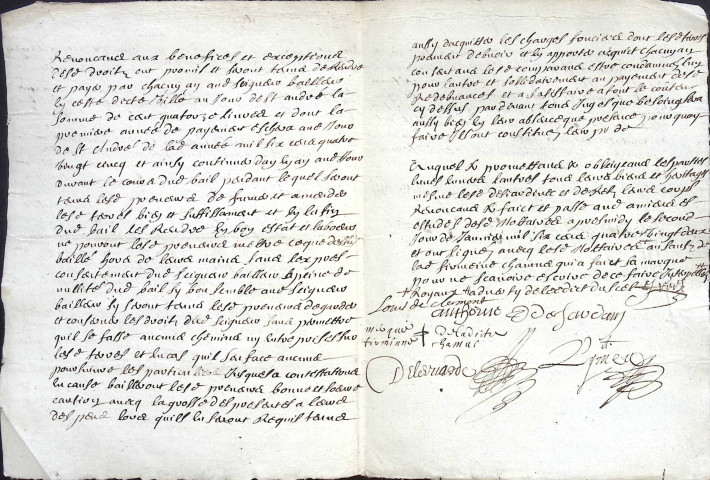 Renonceans aux benefices et exceptions
des droitz ont promis et seront tenus de rendre
et payer par chacun an aud seigneur bailleur
en ceste dicte ville au jour de st andré la
somme de cent quatorze livres et dont la
premiere année de payement eschera au jour
de st andré de lad année mil six cens quatre
vingt cincq et ainsy continuer d'an en an aud jour
durant le cours dud bail pendant lequel seront
tenus les preneurs de fumer et amender
lesd terres bien et suffisamment et en la fin
dud bail les rendre en bon estat et labours
ne pourront lesd preneurs mettre ce que dessus
baillé hors de leurs mains sans l'exprès
consentement dud seigneur bailleur a peine de
nullité dud bail sy bon semble aud seigneur
bailleur sy seront tenus lesd preneurs de garder
et conserver les droitz dud seigneur sans permettre
qu'il se fasse aucuns chemins ny entreprises sur
les terres et en cas qu'il se fasse aucunes
poursuives les particuliers jusques a contestation
en cause bailleront lesd preneurs bonne et seure
caution avecq la grosse des presentes a leurs
despens lors qu'ilz en seront requis tenus
aussy d'acquitter les charges foncieres dont lesd terres
peuvent debvoir et en apporter acquit chacun an
consentans lesd comparans estre condamnez l'un
pour l'autre et sollidairement au payement desd
redebvances et a satisfaire a tout le contenu
cy dessus par devant tous juges que besoing sera
aussy bien en leur absence que presence pourquoy
faire ilz ont constitué leur pr de
Auquel & promettans & obligeans les parties
l'une envers l'autre tous leurs biens et heritages
mesme lesd de leurs corps
Renonceans & faict et passé aud amiens es
estudes desd notaires apres midy le second
jour de janvier mil six cens quatre vingt deux
et ont signé avecq lesd notaires au
lad firminne chamus qui a fait sa marque
pour ne scavoir escrire de ce faire interpellez
Louis de Clermont
anthoine D de Jardain
marque
firminne
de ladite
chamus